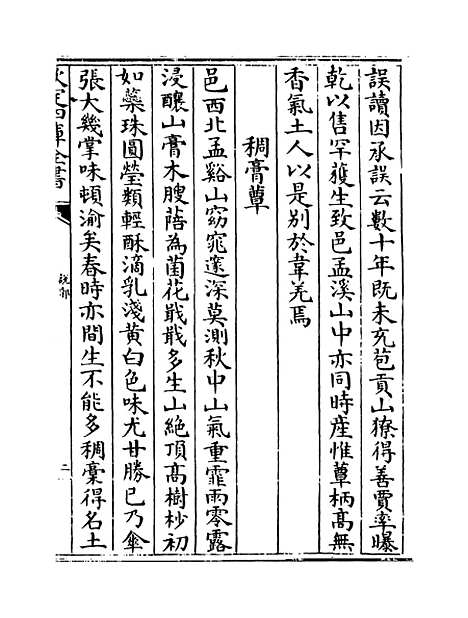 誤讀因承誤云數十年既未充苞貢山獠得善賈率曝
乾以售罕蕕生致邑孟溪山中亦同時産惟蕈柄髙無
香氣土人以是别於韋羌焉
稠膏蕈
邑西北孟谿山窈窕邃深莫測秋中山氣重霏雨零露
浸釀山膏木腴蓓為菌花戢戢多生山絶頂髙樹杪初
如蘂珠圓瑩類輕酥滴乳淺黄白色味尤甘勝已乃傘
張大幾掌味頓渝矣春時亦間生不能多稠膏得名土
欽定四庫全書
説郛
二